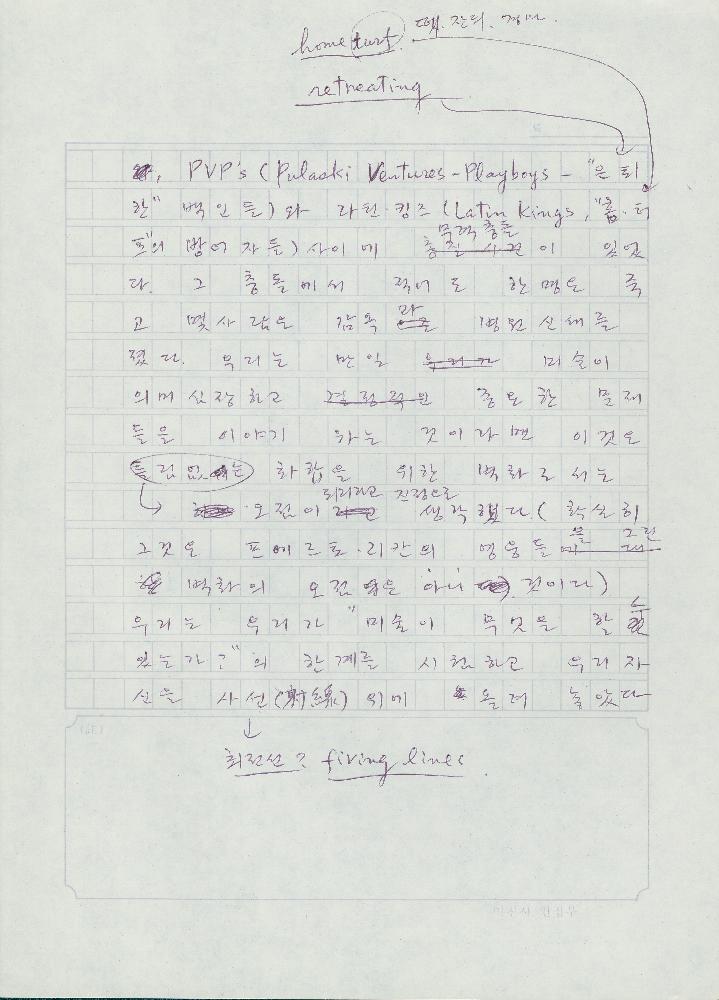 home turf. 잔디.
retreating
, PVP's (Pulaski Ventures-Playboys - "은퇴
한" 백인들)와 라틴·킹즈 (Latin Kings, "홈·터
무력충돌
프"의 방어자들) 사이에 충칠 사건이 있었
다. 그 충돌에서 적어도 한명은 죽
고 몇사람은 감옥과 병원신세를
졌다. 우리는 만일 우리가 미술이
의미심장하고 결정적인 중요한 문제
들을 이야기 하는 것이라면 이것은
틀림없는 화합을 위한 벽화로서는
되리라고 진정으로
오점이 생각했다 (확실히
을 그린
그것은 푸에르토·리칸의 영웅들에 대
벽화의 오점은 아니 것이다)
우리는 우리가 "미술이 무엇을 할 수
있는가?"의 한계를 시험하고 우리자
신을 사선(射線)위에 올려 놓았다
최전선? firing lines